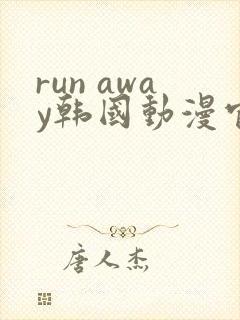 run awa
y韩國動漫官
唐人杰